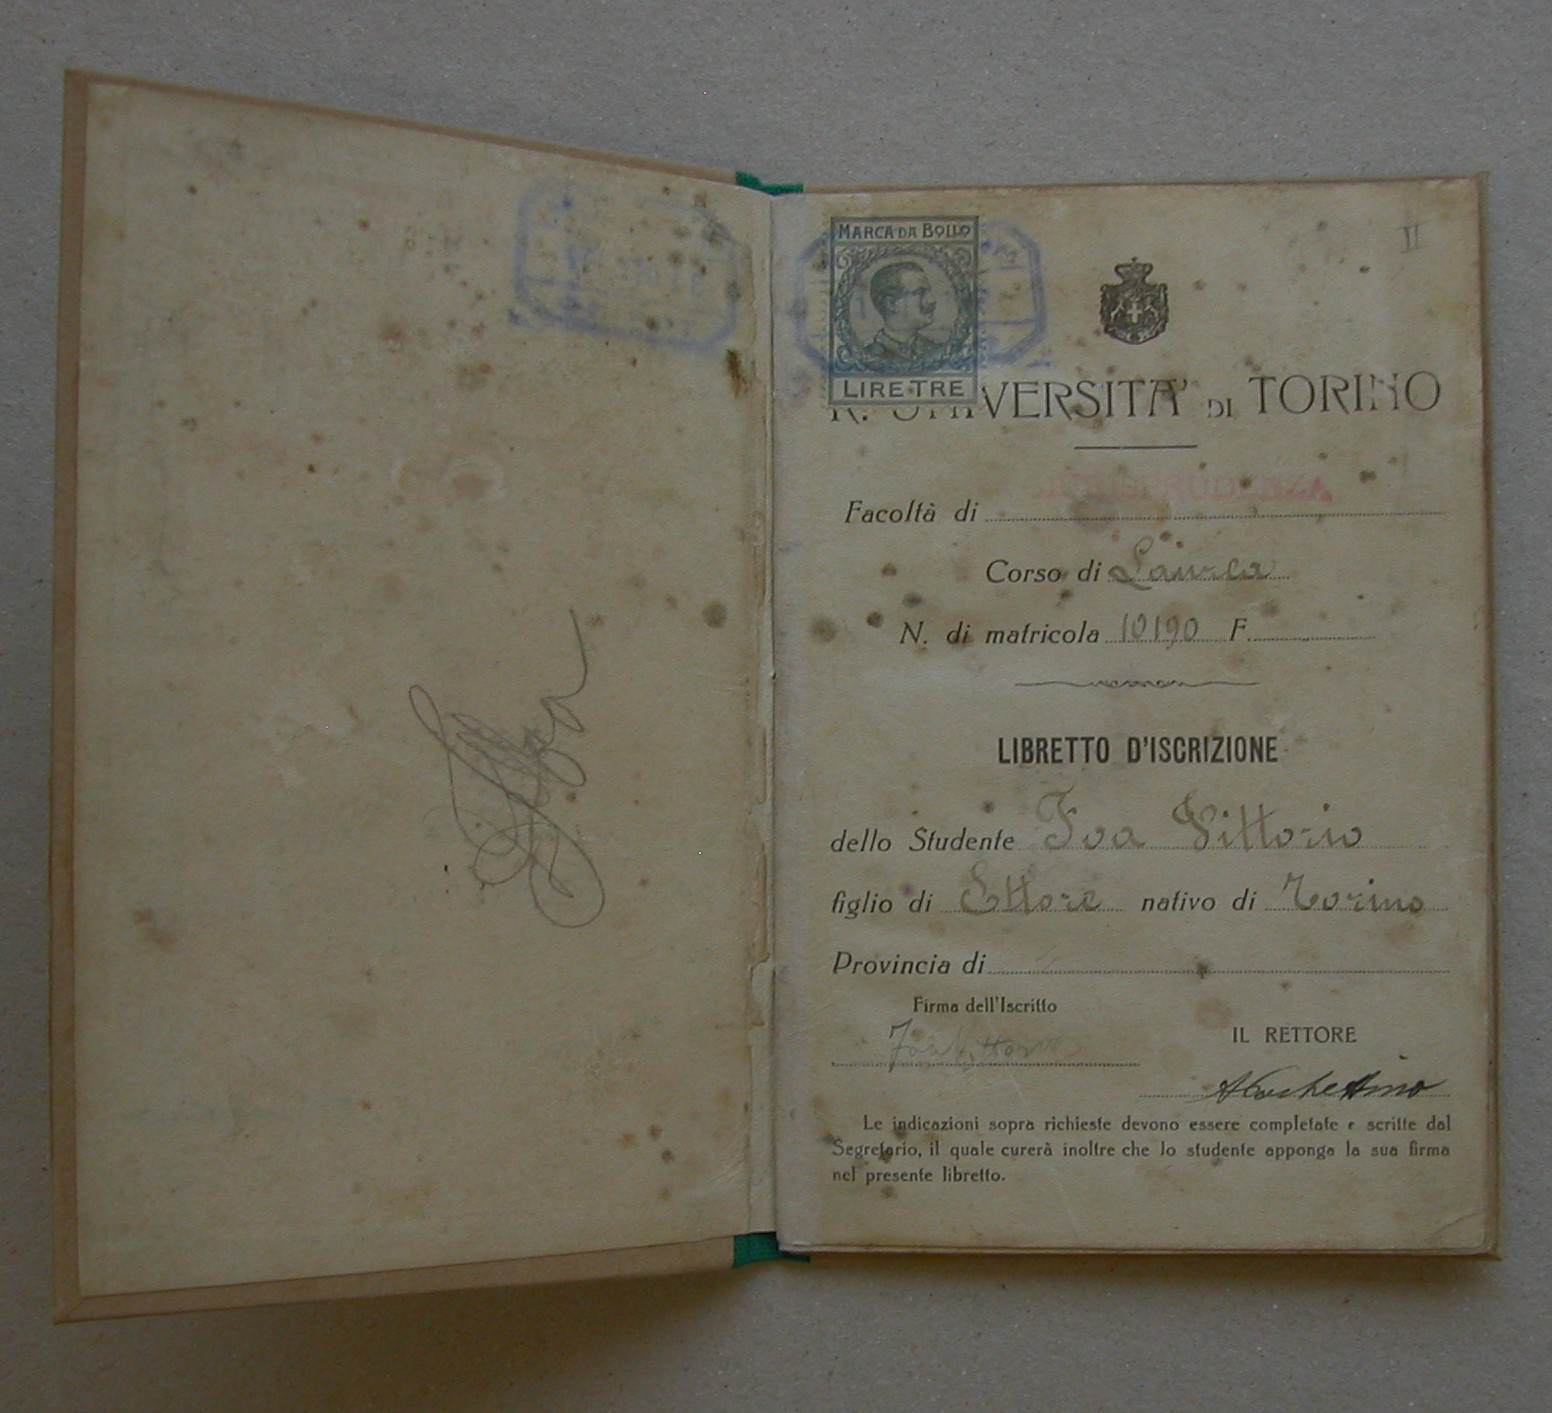 II
MARCA DA BOLLO
LIRE TRE
R. UNIVERSITA' DI TORINO
Facoltà di
Corso di Laurea
N. di matricola 10190 F.
LIBRETTO D'ISCRIZIONE
dello Studente Foa Vittorio
figlio di Ettore nativo di Torino
Provincia di
Firma dell'Iscritto
Foa Vittorio
IL RETTORE
Le indicazioni sopra richieste devono essere completate e scritte dal
Segretario, il quale curerà inoltre che lo studente apponga la sua firma
nel presente libretto.